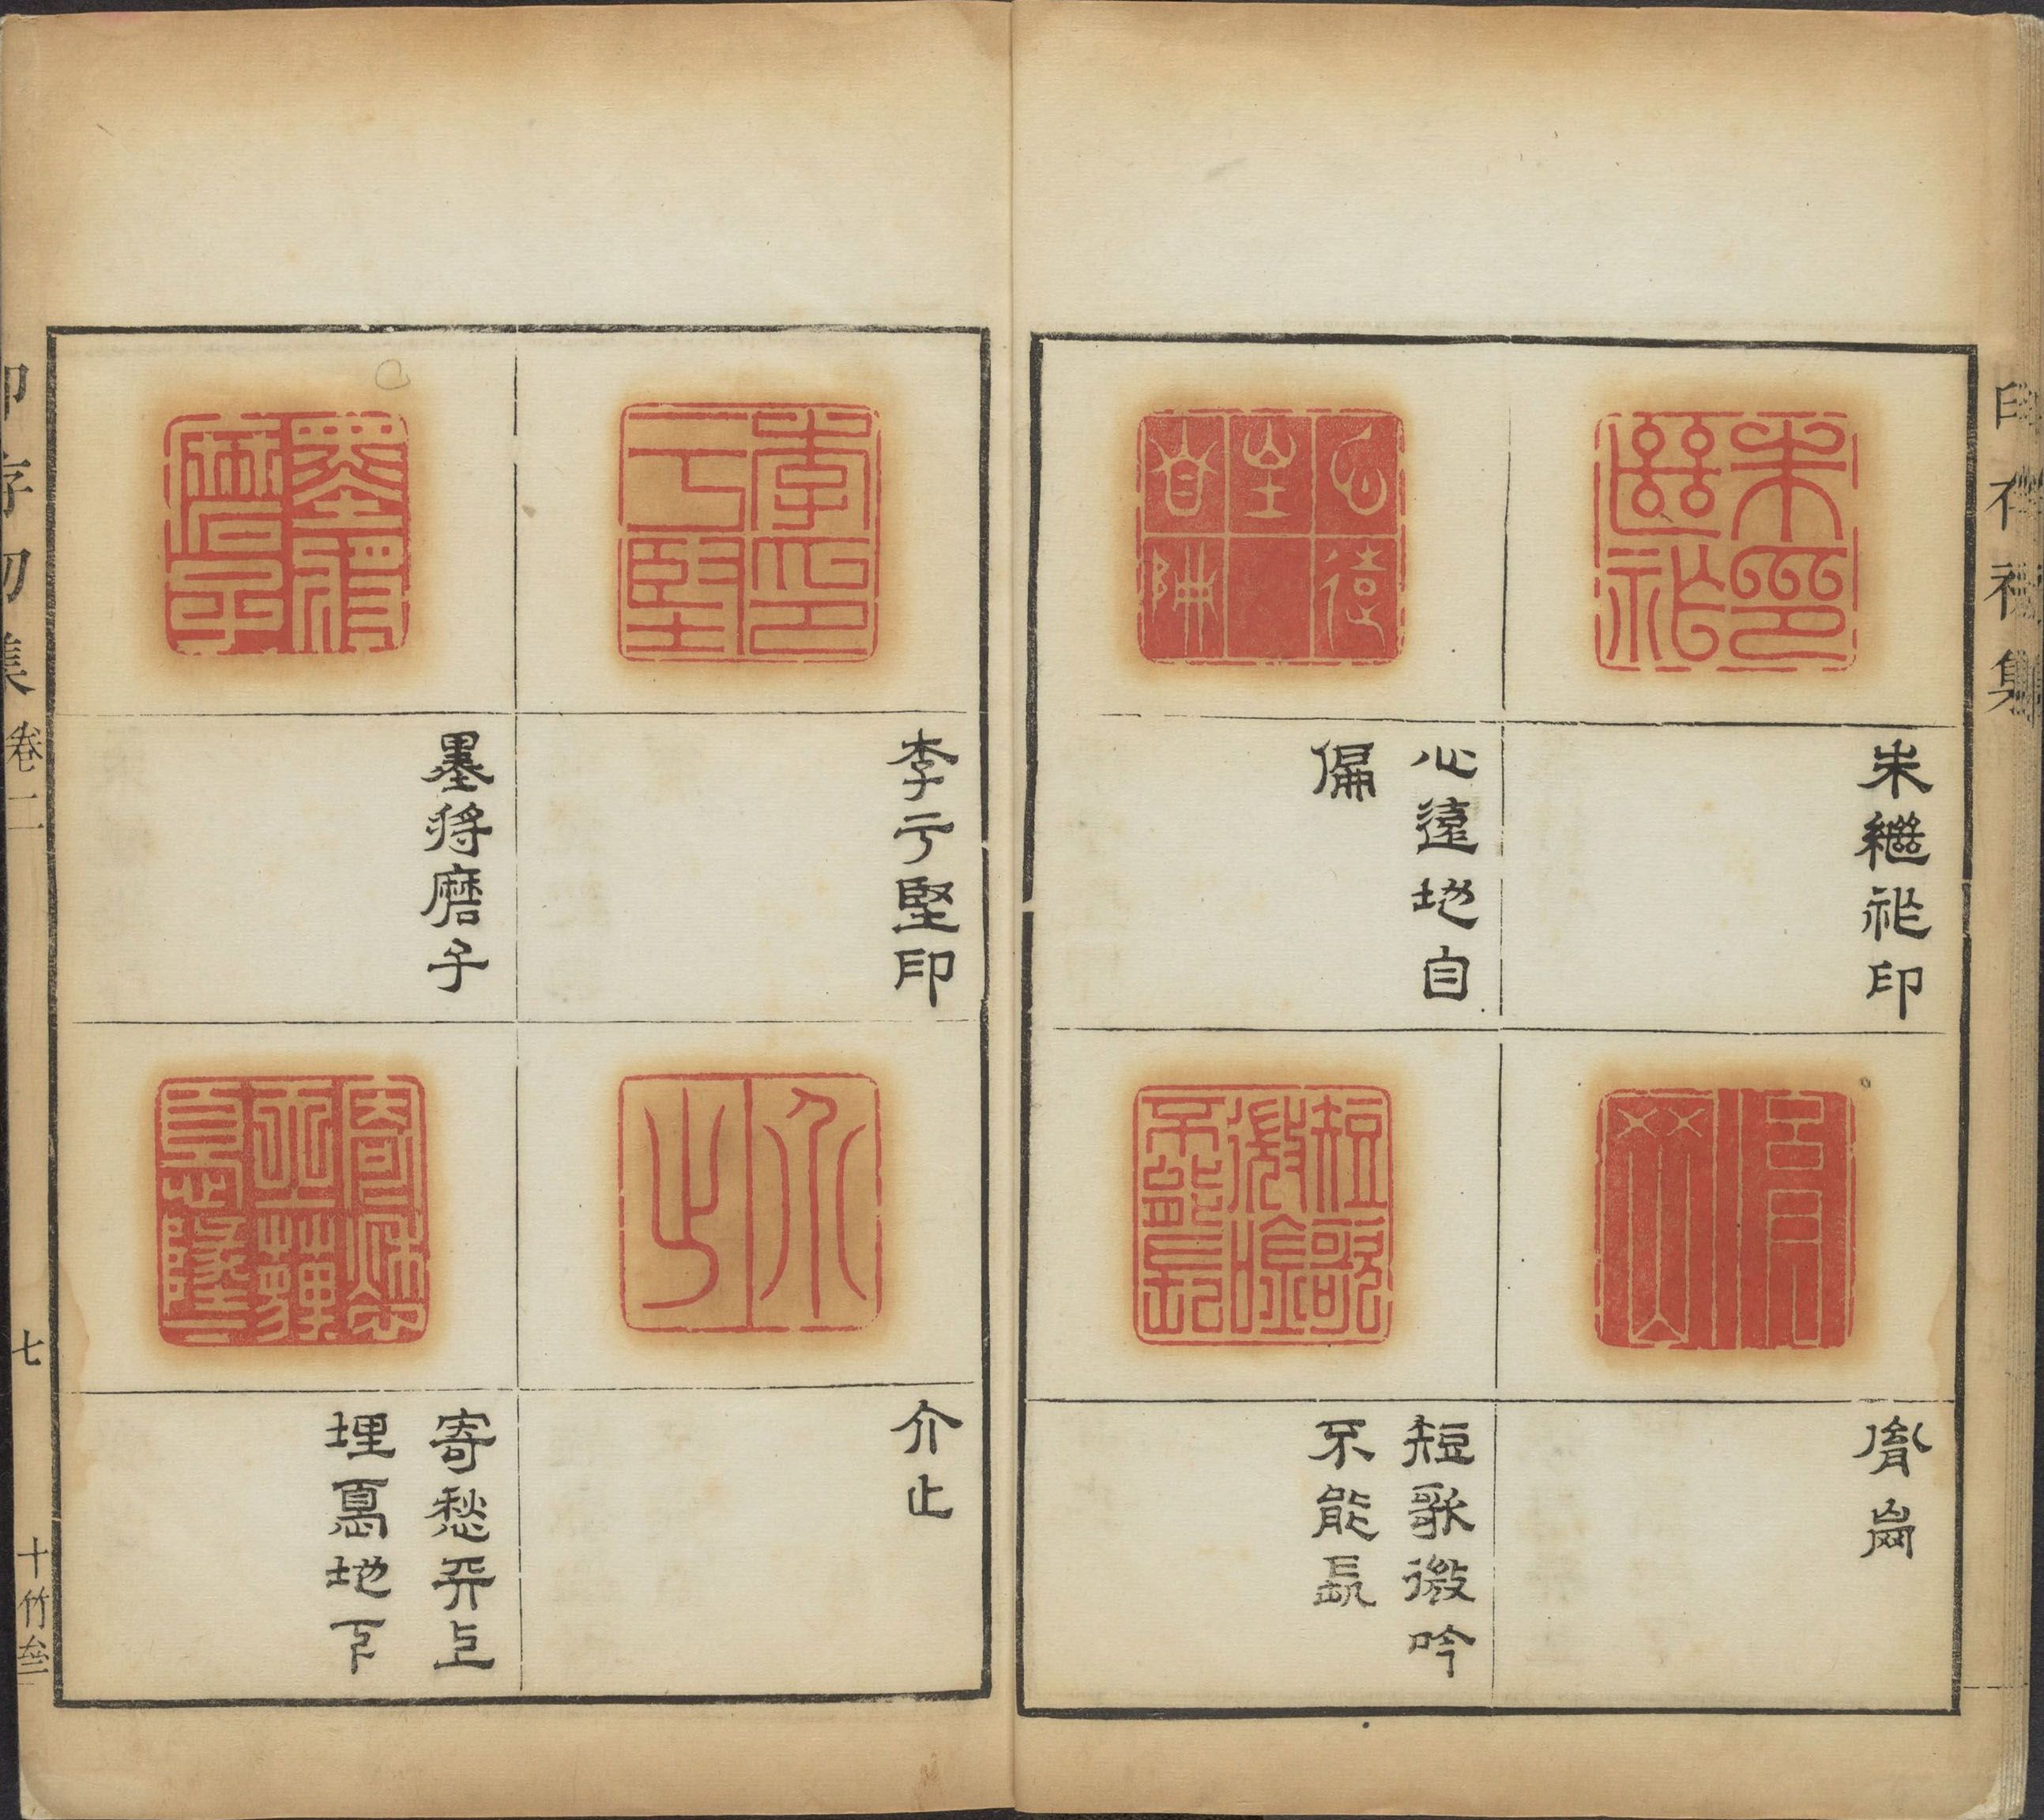 印存初集
朱繼祚印
心遠地自
偏
胤崗
短歌微吟
不能長
李丂堅印
墨將磨子
介止
寄愁天上
埋憂地下
印存初集
卷二
七
十竹